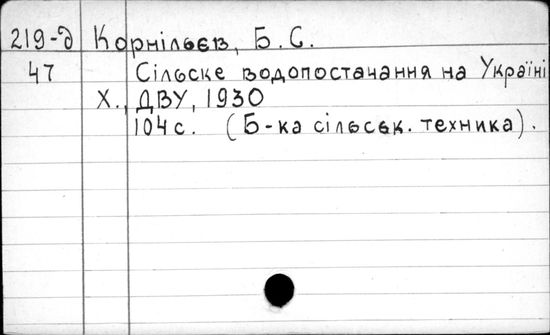 219-д Корнільєв, Б.С.
47 Сільске водопостачання на Україні
Х., ДВУ, 1930
104с. (Б-ка сільськ. техника).